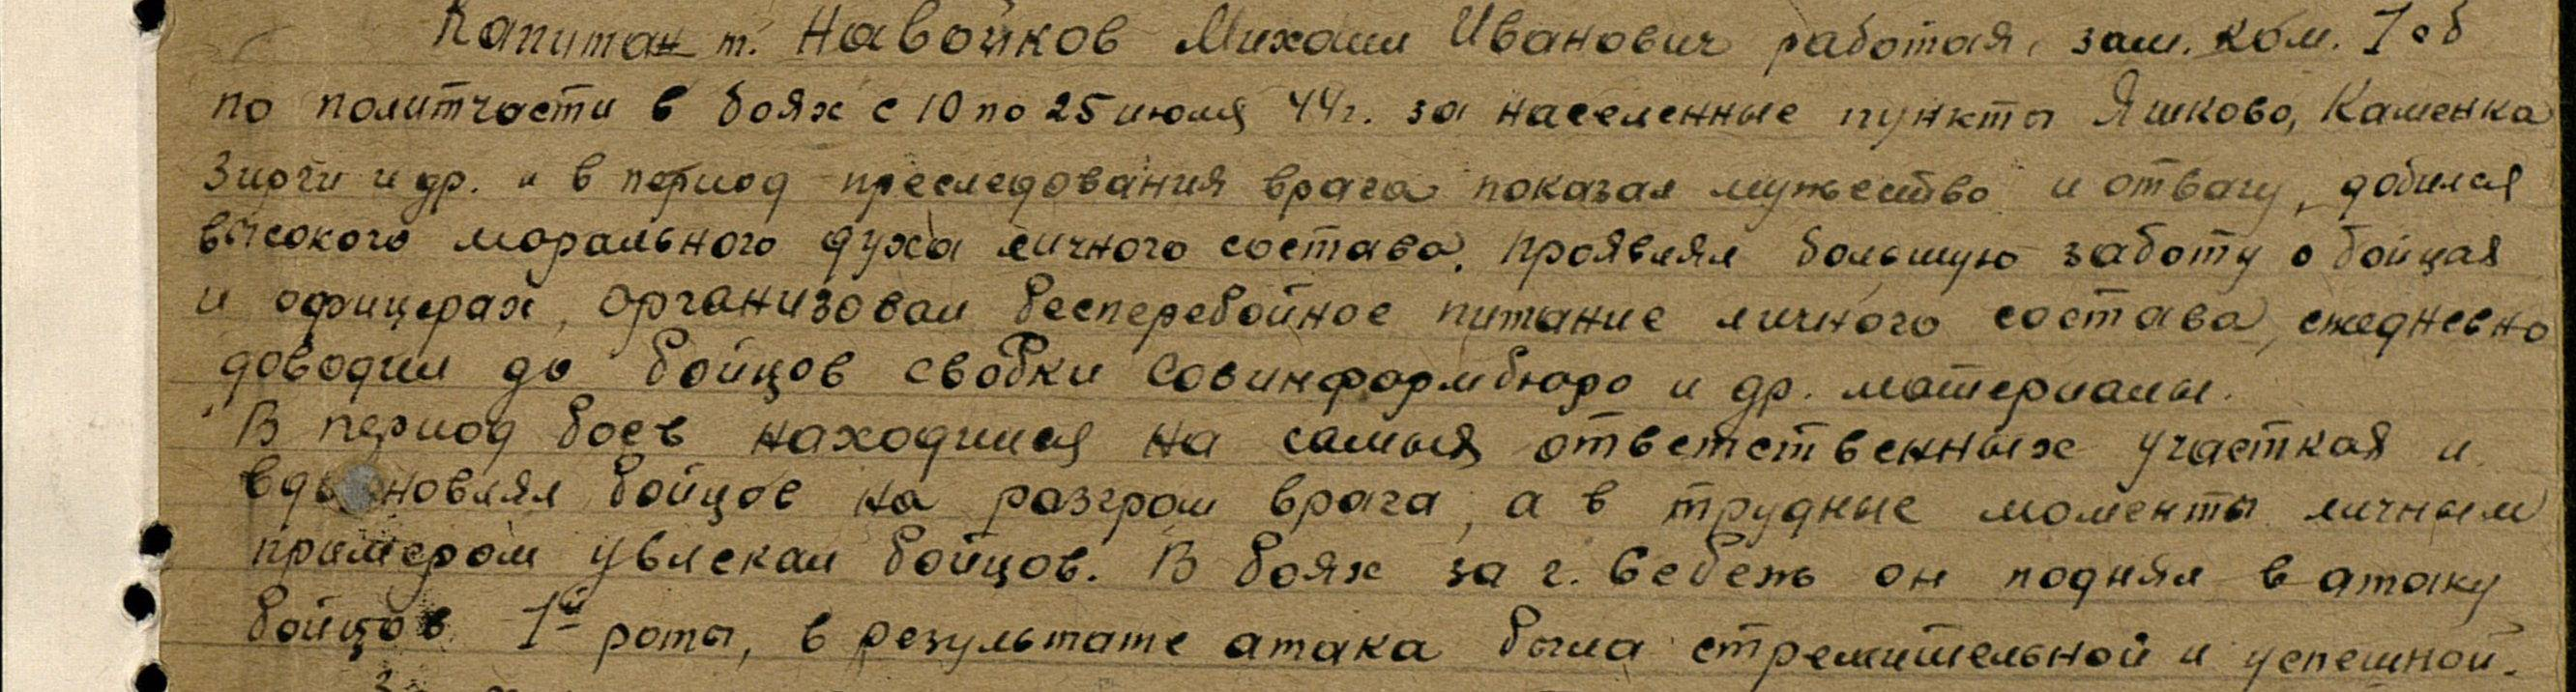 Капитан т. Навойков Михаил Иванович работая зам. ком. 1 сб
по политчасти в боях с 10 по 25 июля 44г. за населенные пункты Яшково, Каменка
Зирги и др. и в период преследования врага показал мужество и отвагу, добился
высокого морального духа личного состава. Проявлял большую заботу о бойцах
и офицерах, организовал бесперебойное питание личного состава, ежедневно
доводил до бойцов сводки Совинформбюро и др. материалы.
В период боев находился на самых ответственных участках и
вдохновлял бойцов на разгром врага, а в трудные моменты личным
примером увлекал бойцов. В боях за г. Себеж он поднял в атаку
бойцов 1й роты, в результате атака была стремительной и успешной.